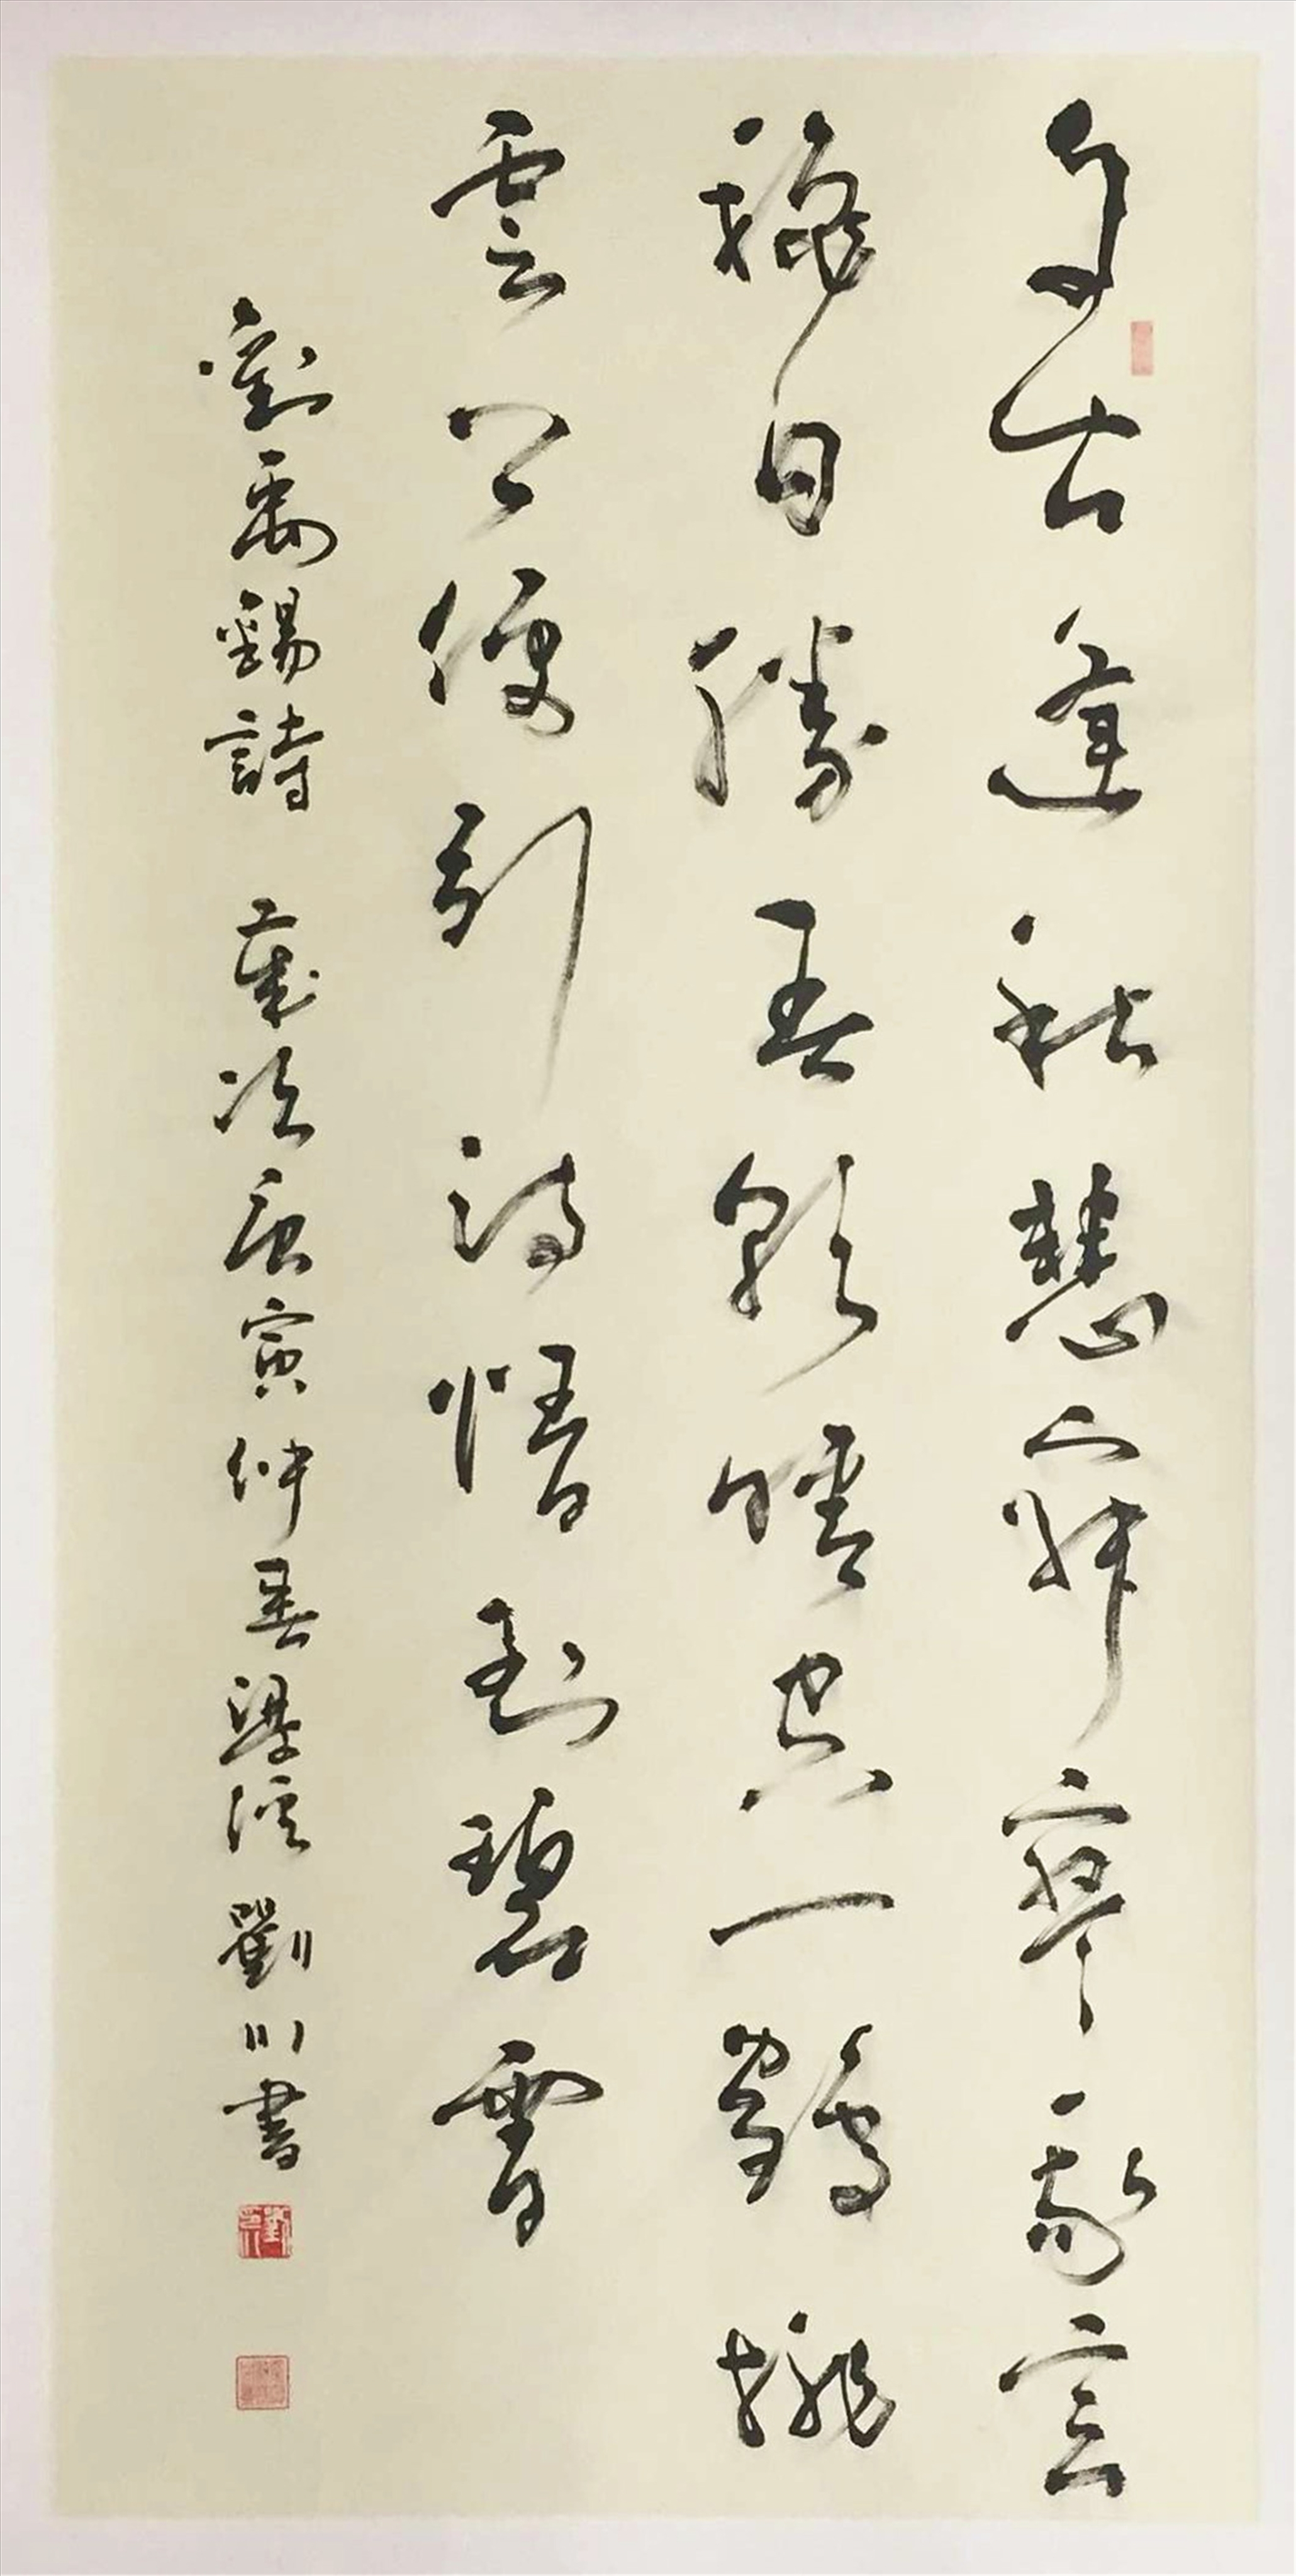 自古逢秋悲寂寥我言
秋日勝春朝晴空一鶴排
雲上便引詩情到碧霄
劉禹錫詩 歲次庚寅仲春梁溪劉川書